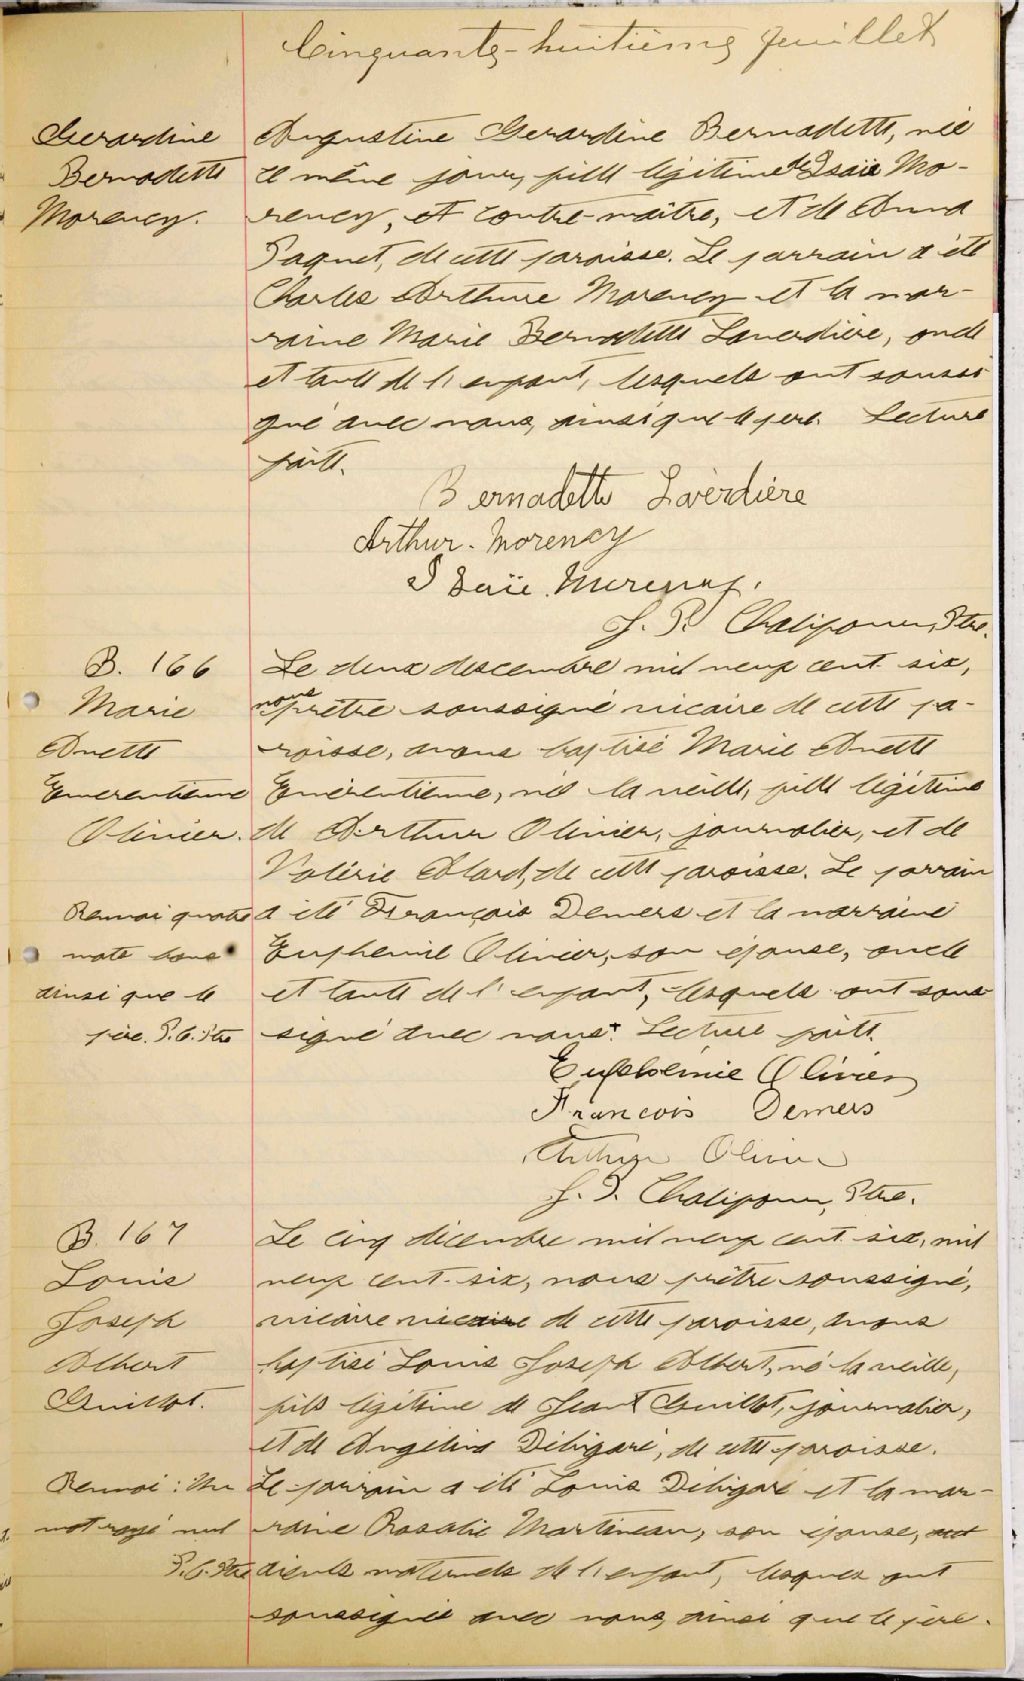 Cinquante-huitième feuillet
Gerardine
Bernadette
Morency.
Augustine Gerardine Bernadette, née
le même jour, fille légitime de Isaïe Mo-
rency, et contre-maître, et de Anna
Paquet, de cette paroisse. Le parrain a été
Charles Arthure Morency et la mar-
raine Marie Bernadette Laverdière, oncle
et tante de l'enfant, lesquels ont soussi
gné avec nous, ainsi que le père. Lecture
faite.
Bernadette Laverdière
Arthur. Morency
Isaïe. Morency.
J. P. Ptre.
B. 166
Marie
Anette
Emerentienne
Olivier.
Renvoi quatre
mots bons
ainsi que le
père. P.C. Ptre
Le deux descembre mil neuf cent six,
nous prêtre soussigné vicaire de cette pa-
roisse, avons baptisé Marie Anette
Emérentienne, née la veille, fille légitime
de Arthur Olivier, journalier, et de
Valérie Alard, de cette paroisse. Le parrain
a été François Demers et la marraine
Euphemie Olivier, son épouse, oncle
et tante de l'enfant, lesquels ont sous-
signé avec nous+ Lecture faite.
Euphémie Olivier
Francois Demers
Arthur Olivier
J. P. Ptre.
B. 167
Louis
Joseph
Albert
Guillot.
Renvoi : Un
mot rayé nul
P.C. Ptre
Le cinq décembre mil neuf cent six, mil
neuf cent six, nous prêtre soussigné,
vicaire vicaire de cette paroisse, avons
baptisé Louis Joseph Albert, né la veille,
fils légitime de Jean Guillot, journalier,
et de Angelina Débigaré, de cette paroisse.
Le parrain a été Louis Débigaré et la mar-
raine Rosalie Martineau, son épouse,
aieuls maternels de l'enfant, lesquez ont
soussignés avec nous, ainsi que le père.